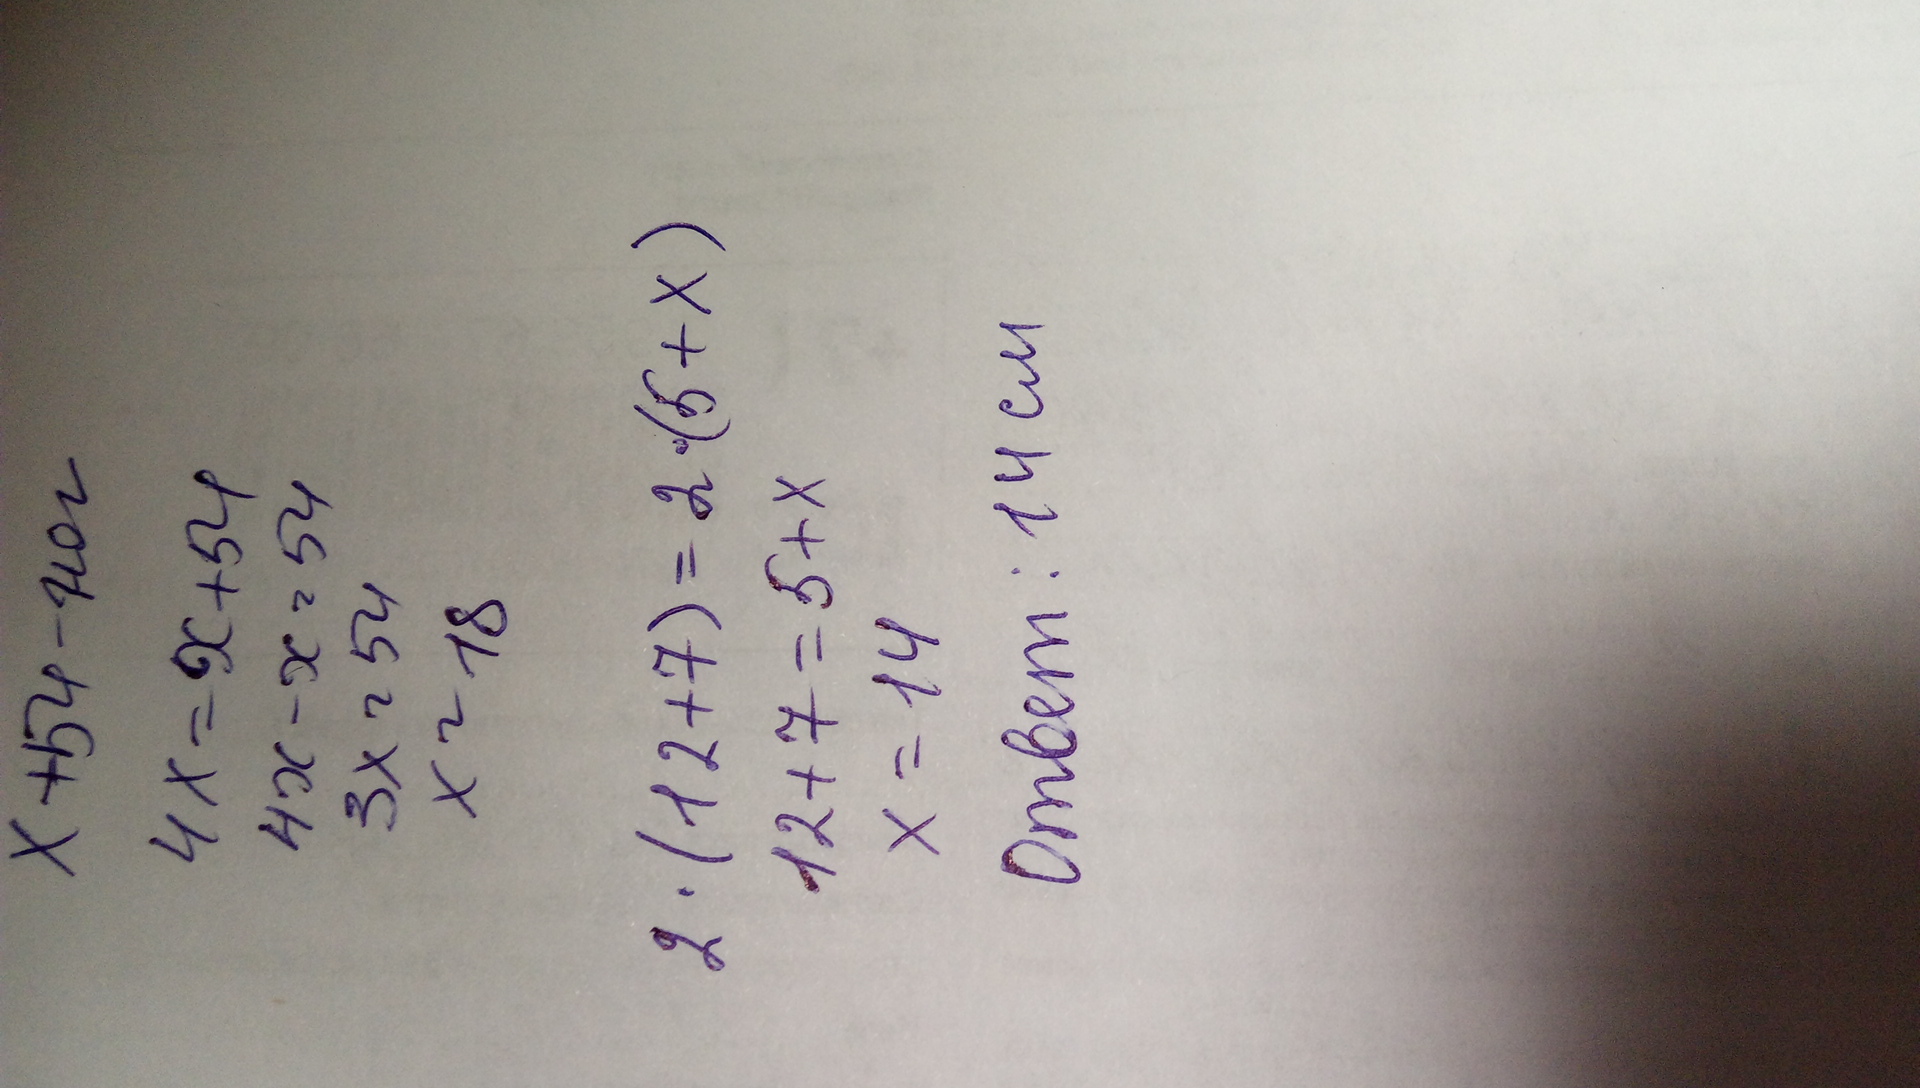 x+54-ног
4x=x+54
4x-x=54
3x=54
x=18
2·(12+7)=2·(5+x)
12+7=5+x
x=14
Ответ: 14 см